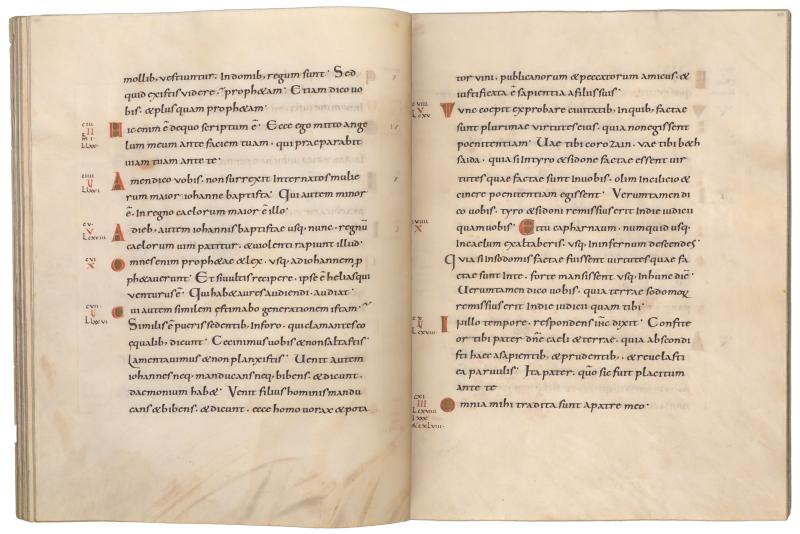 mollib, vestiuntur. In domib, regum sunt· Sed
quid existis videre, prophetam· Etiam dico vo
bis, & plus quam prophetam·
CIII
II
Hic enim ē de quo scriptum ē· Ecce ego mitto ange
lum meum ante faciem tuam, qui praeparabit
viam tuam ante te·
CIIII
V
Amen dico vobis, non surrexit inter natos mulie
rum maior iohanne baptista· Qui autem minor
ē, in regno caelorum maior ē illo·
CV
V
Adieb, autem iohannis baptistae usq; nunc, regnū
caelorum vim patitur, & violenti rapiunt illud·
CVI
X
Omnes enim prophetae & lex, usq; ad iohannem p
phetaverunt· Et si vultis recipere, ipse ē helias qui
venturus ē· Qui hab& aures audiendi, audiat·
CVII
V
Cui autem similem ęstimabo generationem istam·
Similis ē pueris sedentib, in foro, qui clamantes co
ęqualib, dicunt· Cecinimus vobis & non saltastis·
Lamentavimus & non planxistis· Venit autem
iohannes neq; manducans neq; bibens, & dicunt,
daemonium hab&· Venit filius hominis mandu
cans & bibens, & dicunt, ecce homo vorax & pota
tor vini, publicanorum & peccatorum amicus, &
iustificata ē sapientia a filiis suis·
CVIII
V
Tunc coepit exprobare civitatib, in quib, factae
sunt plurimae virtutes eius, quia non egissent
poenitentiam· Vae tibi corozain, vae tibi beth
saida, quia si in tyro & sidone factae essent vir
tutes quae factae sunt in vobis, olim in cilicio &
cinere poenitentiam egissent· Verumtamen di
co vobis, tyro & sidoni remissius erit in die iudicii
CVIIII
X
quam vobis· Et tu capharnaum, numquid usq;
in caelum exaltaberis, usq; in infernum descendes·
Quia si in sodomis factae fuissent virtutes quae fa
ctae sunt in te, forte mansissent usq; in hunc diē·
Verumtamen dico vobis, quia terrae sodomorum
remissius erit in die iudicii quam tibi·
CX
V
In illo tempore, respondens ihc dixit· Confite
or tibi pater dne caeli & terrae, quia abscondi
sti haec a sapientib, & prudentib, & revelasti
ea parvulis· Ita pater, quō sic fuit placitum
ante te
CXI
III
Omnia mihi tradita sunt a patre meo·